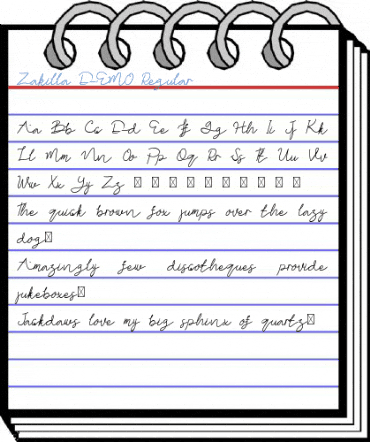 Zakilla D-EMO Regular
Aa Bb Cc Dd Ee Ff Gg Hh Ii Jj Kk
Ll Mm Nn Oo Pp Qq Rr Ss Tt Uu Vv
Ww Xx Yy Zz □ □ □ □ □ □ □ □ □ □
The quick brown fox jumps over the lazy
dog□
Amazingly few discotheques provide
jukeboxes□
Jackdaws love my big sphinx of quartz□